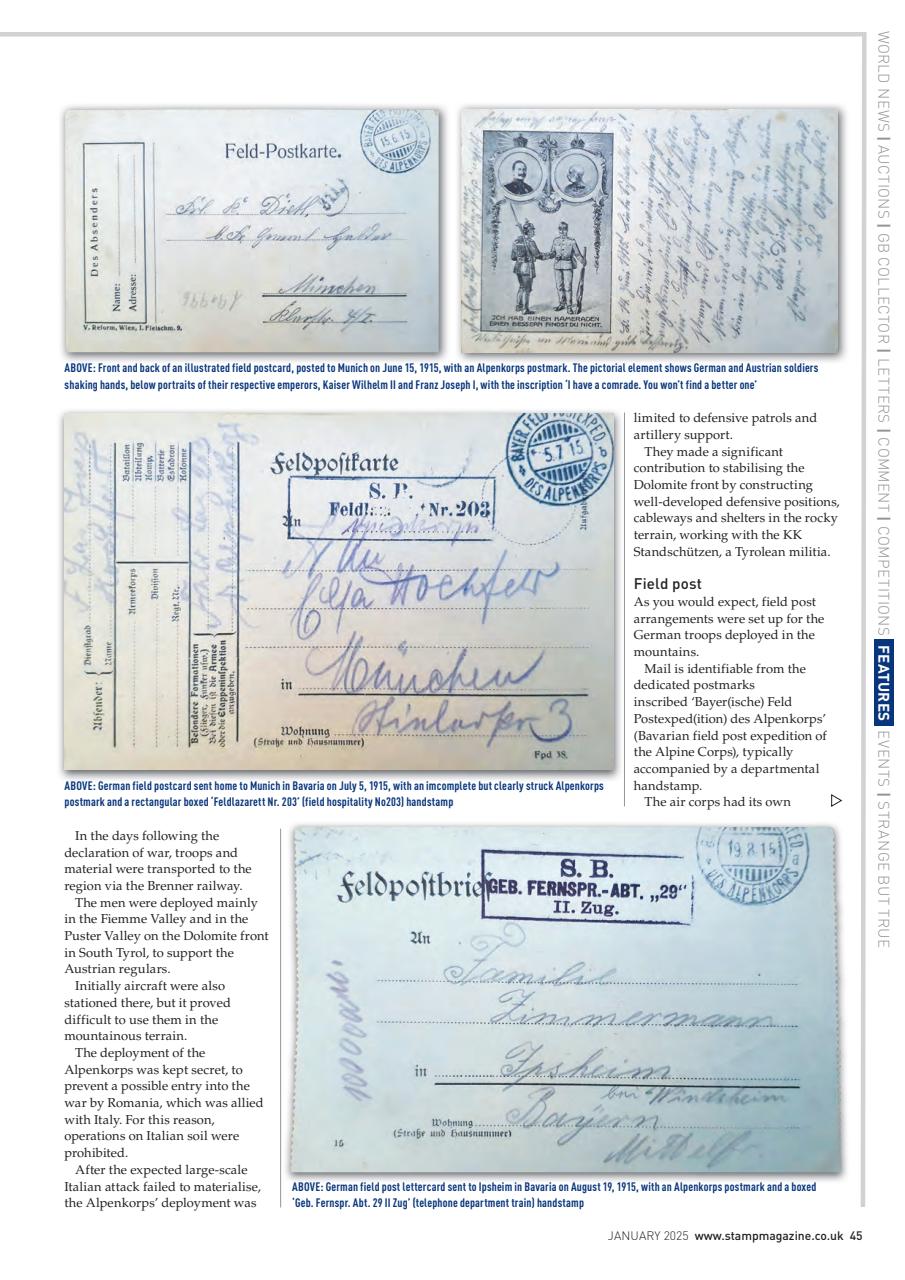 Des Absenders
Name:
Adresse:
Feld-Postkarte.
BAYER FELD POSTEXPED
15.6.15
DES ALPENKORPS
München
V. Reform, Wien, I. Fleischm. 9.
ICH HAB EINEN KAMERADEN
EINEN BESSERN FINDST DU NICHT.
ABOVE: Front and back of an illustrated field postcard, posted to Munich on June 15, 1915, with an Alpenkorps postmark. The pictorial element shows German and Austrian soldiers
shaking hands, below portraits of their respective emperors, Kaiser Wilhelm II and Franz Joseph I, with the inscription ‘I have a comrade. You won’t find a better one’
Absender:
Dienstgrad
Name
Bataillon
Abteilung
Komp.
Batterie
Eskadron
Kolonne
Armeekorps
Division
Regt. Nr.
Besondere Formationen
(Flieger, Funker usw.)
Bei diesen ist die Armee
oder die Etappeninspektion
anzugeben.
Feldpostkarte
S. P.
Nr. 203
BAYER FELD POSTEXPED.
5.7.15
DES ALPENKORPS
An
Hochfeld
in München
Wohnung
(Straße und Hausnummer)
3
Fpd 38.
ABOVE: German field postcard sent home to Munich in Bavaria on July 5, 1915, with an imcomplete but clearly struck Alpenkorps
postmark and a rectangular boxed ‘Feldlazarett Nr. 203’ (field hospitality No203) handstamp
In the days following the
declaration of war, troops and
material were transported to the
region via the Brenner railway.
The men were deployed mainly
in the Fiemme Valley and in the
Puster Valley on the Dolomite front
in South Tyrol, to support the
Austrian regulars.
Initially aircraft were also
stationed there, but it proved
difficult to use them in the
mountainous terrain.
The deployment of the
Alpenkorps was kept secret, to
prevent a possible entry into the
war by Romania, which was allied
with Italy. For this reason,
operations on Italian soil were
prohibited.
After the expected large-scale
Italian attack failed to materialise,
the Alpenkorps’ deployment was
limited to defensive patrols and
artillery support.
They made a significant
contribution to stabilising the
Dolomite front by constructing
well-developed defensive positions,
cableways and shelters in the rocky
terrain, working with the KK
Standschützen, a Tyrolean militia.
Field post
As you would expect, field post
arrangements were set up for the
German troops deployed in the
mountains.
Mail is identifiable from the
dedicated postmarks
inscribed ‘Bayer(ische) Feld
Postexped(ition) des Alpenkorps’
(Bavarian field post expedition of
the Alpine Corps), typically
accompanied by a departmental
handstamp.
The air corps had its own
Feldpostbrief
S. B.
GEB. FERNSPR.-ABT. „29“
II. Zug.
19.8.15
DES ALPENKORPS
An
Familie
Zimmermann
in Ipsheim
bei Windsheim
Wohnung Bayern
(Straße und Hausnummer)
Mittelfr.
ABOVE: German field post lettercard sent to Ipsheim in Bavaria on August 19, 1915, with an Alpenkorps postmark and a boxed
‘Geb. Fernspr. Abt. 29 II Zug’ (telephone department train) handstamp
WORLD NEWS | AUCTIONS | GB COLLECTOR | LETTERS | COMMENT | COMPETITIONS FEATURES EVENTS | STRANGE BUT TRUE
JANUARY 2025 www.stampmagazine.co.uk 45